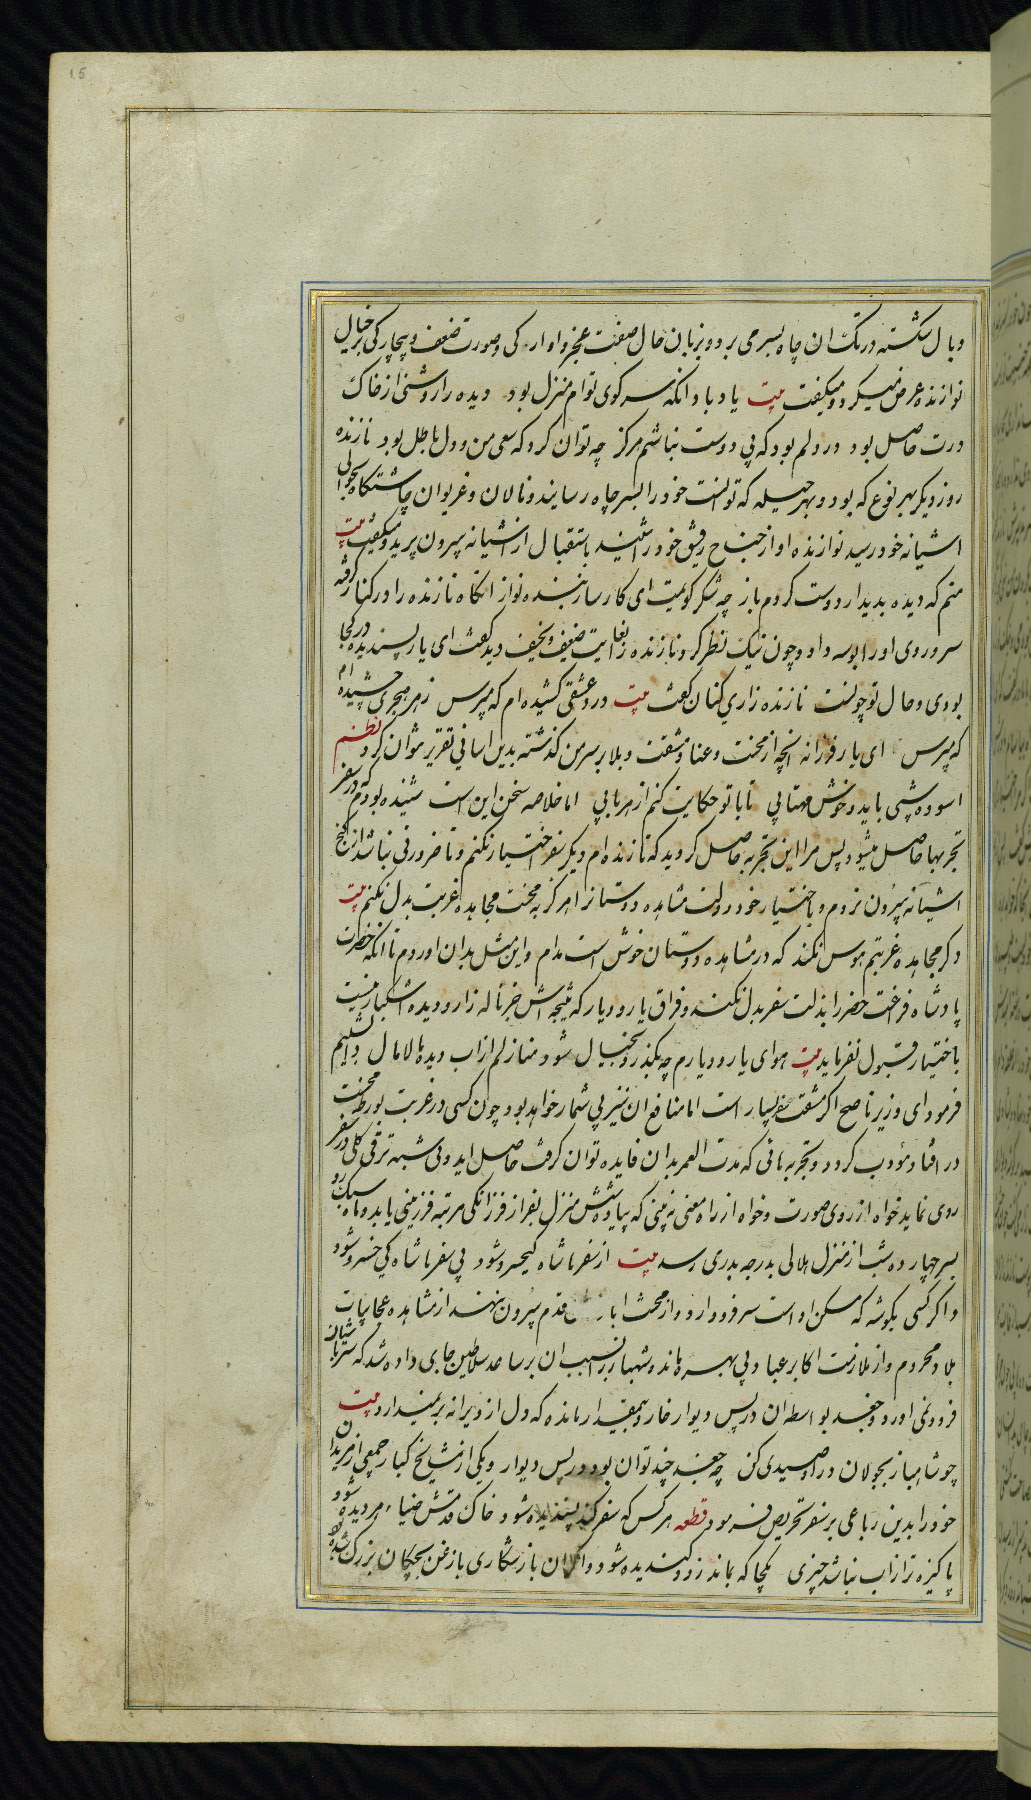 15
و بال شکسته در تک ان چاه بسر می برد و بزبان حال صفت عجز و اوارکی و صورت ضعف و بیچارکی بر خیال
نوازنده عرض میکرد و میکفت بیت یاد باد انکه سر کوی توام منزل بود دیده را روشنی از خاک
درت حاصل بود در دلم بود که بی دوست نباشم هرکز چه توان کرد که سعی من و دل باطل بود نازنده
روز دیکر بهر نوع که بود و بهر حیله که توانست خود را بسر چاه رسانید و نالان و غریوان چاشتکاه بحوالی
اشیانه خود رسید نوازنده اواز جناح رفیق خود را شنید باستقبال از اشیانه بیرون پرید و میکفت بیت
منم که دیده بدیدار دوست کردم باز چه شکر کویمت ای کارساز بنده نواز انکاه نازنده را در کنار کرفته
سر و روی او را بوسه داد و چون نیک نظر کرد نازنده را بغایت ضعیف و نحیف دید کفت ای یار پسندیده در کجا
بودی و حال تو چونست نازنده زاری کنان کفت بیت درد عشقی کشیده ام که مپرس زهر هجری چشیده ام
که مپرس ای یار فرزانه انچه از محنت و عنا و مشقت و بلا بر سر من کذشته بدین اسانی تقریر نتوان کرد نظم
اسوده شبی باید و خوش مهتابی تا با تو حکایت کنم از هر بابی اما خلاصه سخن این است شنیده بودم که در سفر
تجربها حاصل میشود پس مرا این تجربه حاصل کردید که تا زنده ام دیکر سفر اختیار نکنم و تا ضرورتی نباشد از کنج
اشیانه بیرون نروم و باختیار خود دولت مشاهده دوستانرا هرکز به محنت مجاهده غربت بدل نکنم بیت
دکر مجاهده غربتم هوس نکند که در مشاهده دوستان خوش است مدام و این مثل بدان اوردم تا انکه حضرت
پادشاه فراغت حضر را بذلت سفر بدل نکند و فراق یار و دیار که نتیجه اش جز ناله زار و دیده اشکبار نیست
باختیار قبول نفرماید بیت هوای یار و دیارم چه بکذرد بخیال شود منازلم از اب دیده مالامال دابشلیم
فرمود ای وزیر ناصح اکر مشقت سفر بسیار است اما منافع ان نیز بی شمار خواهد بود چون کسی در غربت بورطه محنت
در افتد مؤدب کردد و تجربه هائی که مدت العمر بدان فایده توان کرفت حاصل اید و بی شبهه ترقی کلی در سفر
روی نماید خواه از روی صورت و خواه از راه معنی نه بینی که پیاده شش منزل بفراز فرزانکی مرتبه فرزینی یابد و ماه سبک رو
بسیر چهارده شب از منزل هلالی بدرجه بدری رسد بیت از سفرها شاه کیخسرو شود بی سفرها شاه کی خسرو شود
و اکر کسی بکوشه که مسکن او است سر فرود ارد و از محنت اباد قدم بیرون ننهد از مشاهده عجایبات
بلاد محروم و از ملازمت اکابر عباد بی بهره ماند و شهباز را بسبب ان بر ساعد سلاطین جای داده شد که سر باشیان
فرو نمی اورد و جغد بواسطه ان در پس دیوار خار و بیمقدار مانده که دل از ویرانه بر نمیدارد بیت
چو شاهباز بجولان در ا و صیدی کن چه جغد چند توان بود در پس دیوار و یکی از مشایخ کبار جمعی از مریدان
خود را بدین رباعی بر سفر تحریص فرمود قطعه هر کس که سفر کند پسندیده شود خاک قدمش ضیاء هر دیده شود
پاکیزه تر از اب نباشد چیزی یکجا که بماند زود کندیده شود و اکر ان باز شکاری باز غن بچکان بزرک شده